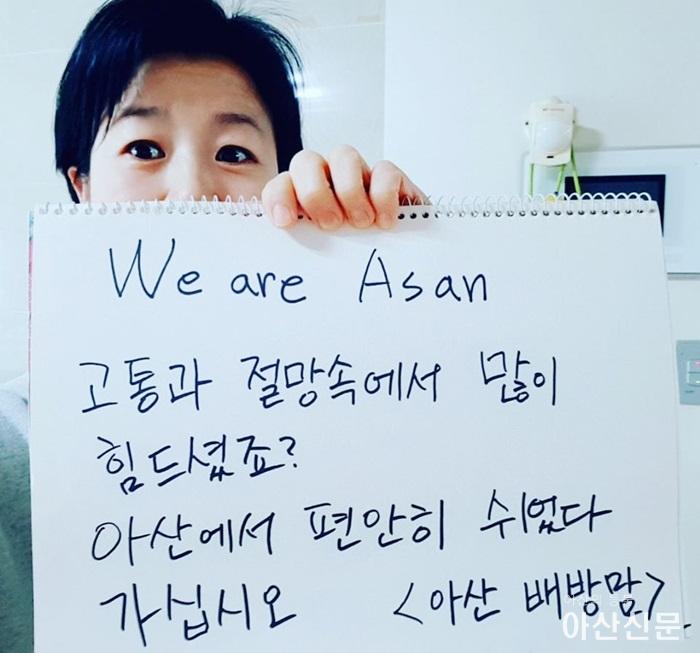 We are Asan
고통과 절망속에서 많이
힘드셨죠?
아산에서 편안히 쉬었다
가십시오 <아산 배방맘>
아산신문